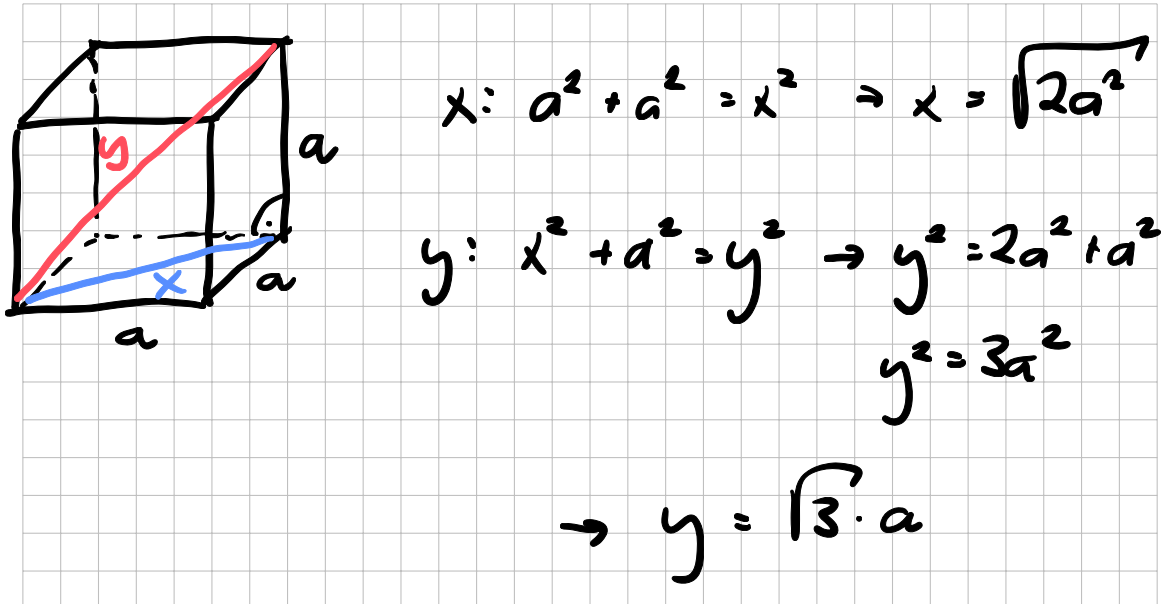 y
a
x
a
a
x: a² + a² = x² ⇒ x = √(2a²)
y: x² + a² = y² → y² = 2a² + a²
y² = 3a²
→ y = √3 · a